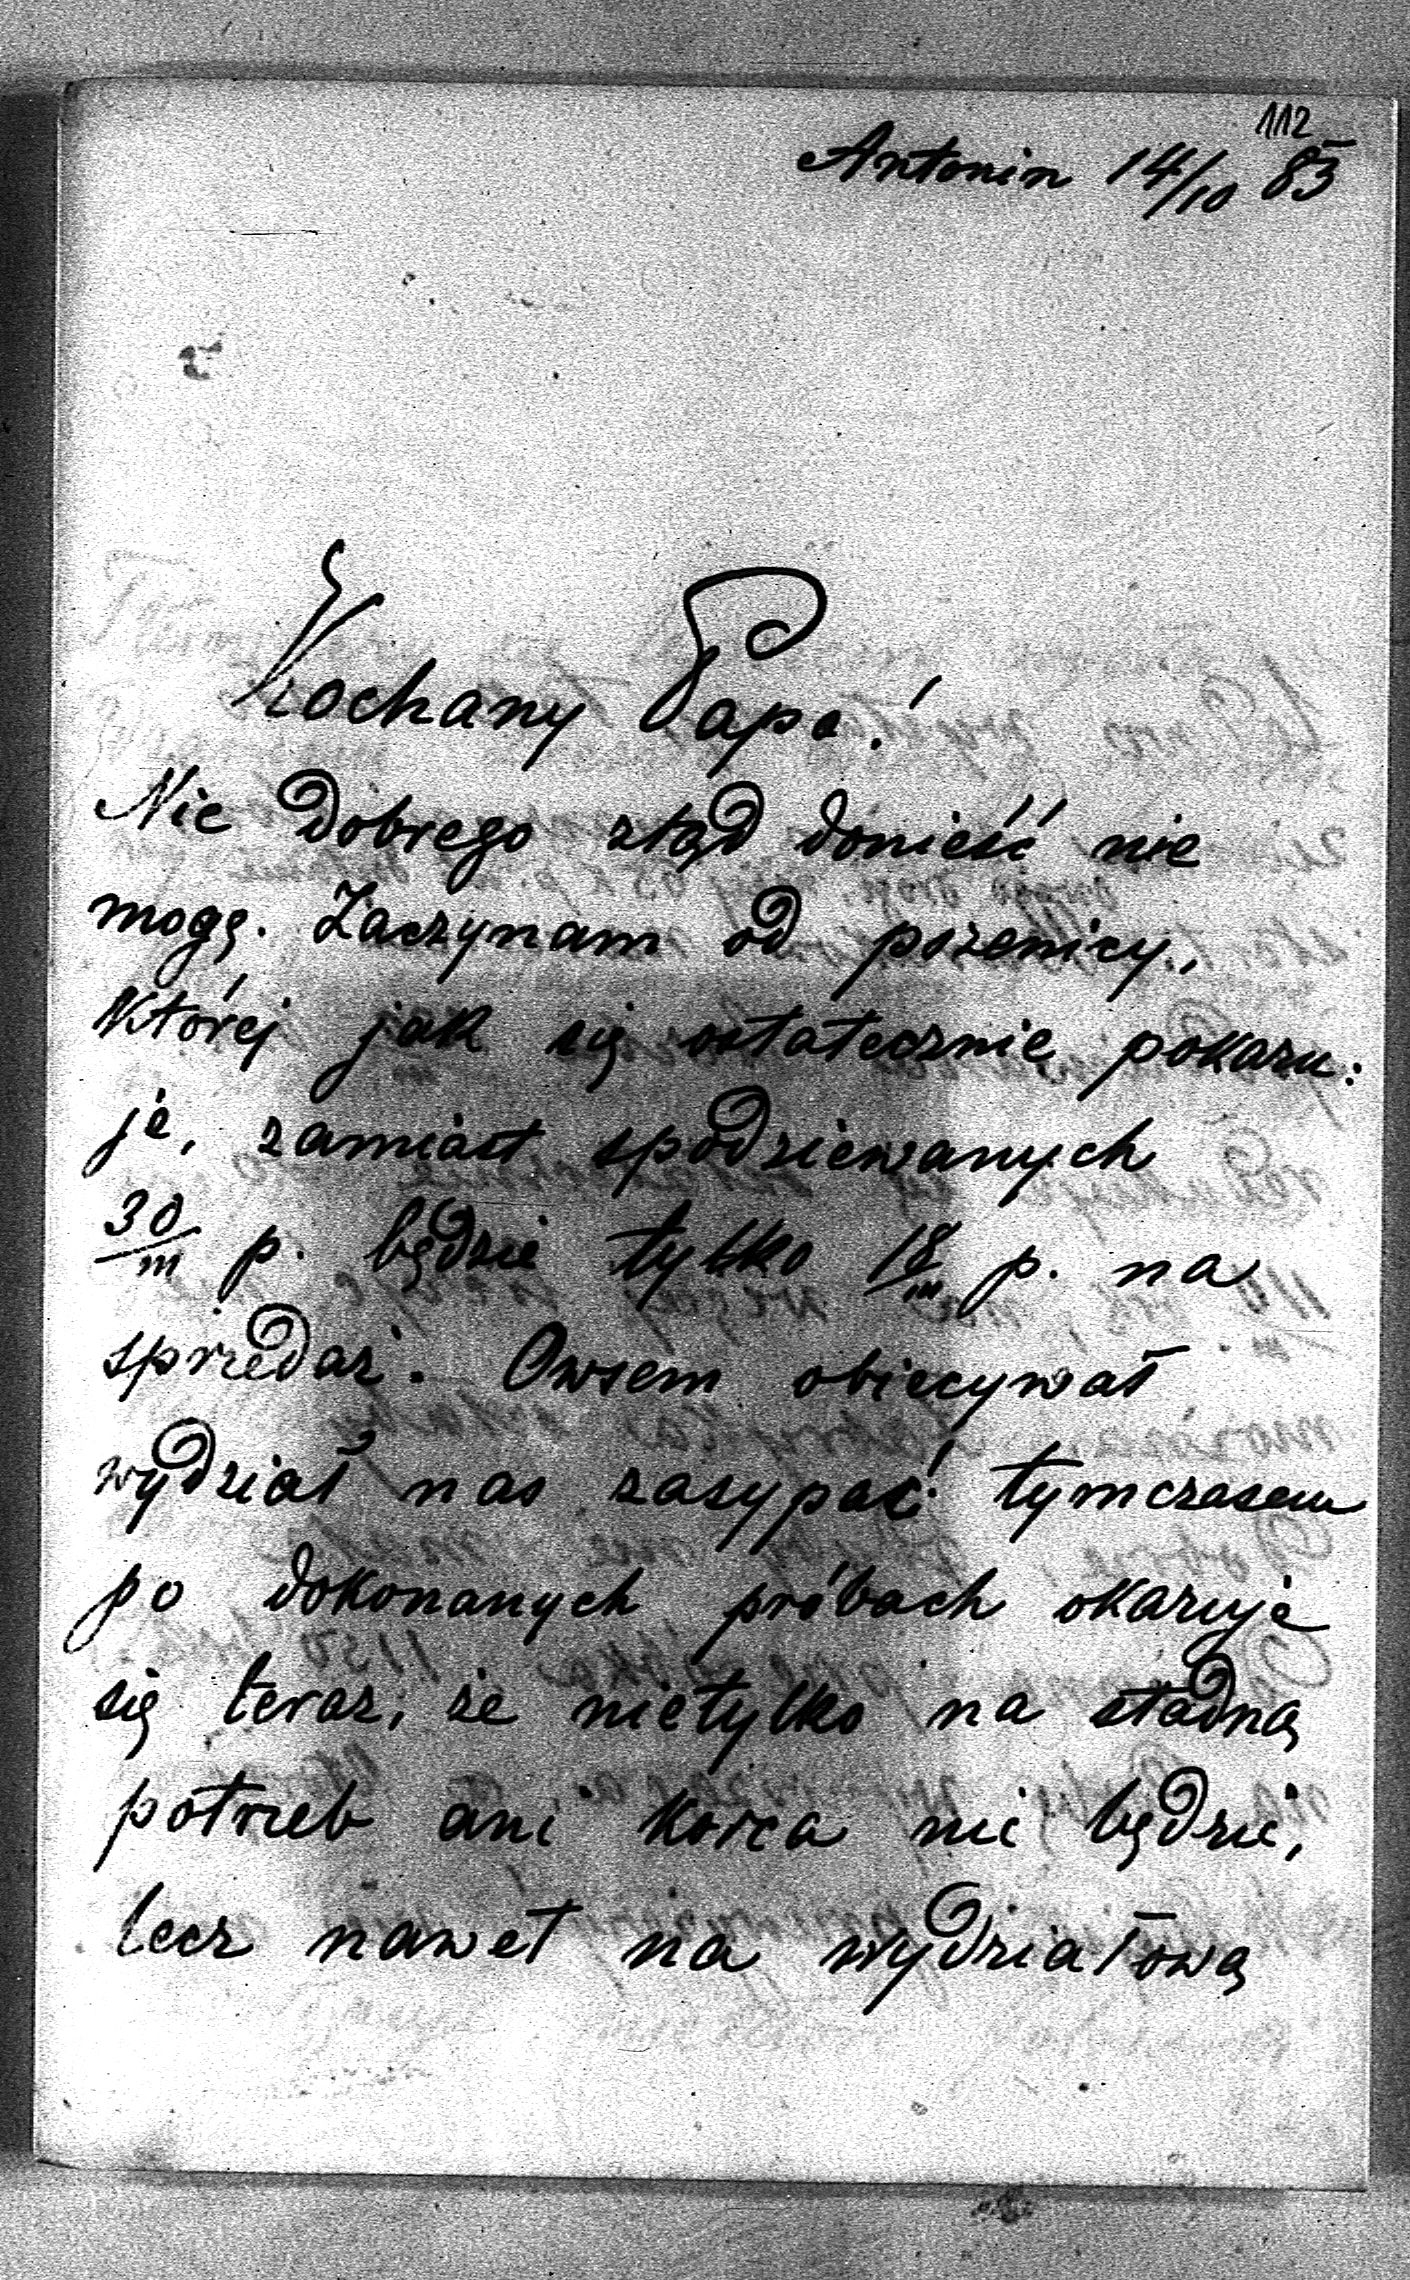 112
Antonin 14/10 83
Kochany Papo!
Nic dobrego ztąd donieść nie
mogę. Zaczynam od pszenicy,
której jak się ostatecznie pokazu:
je, zamiast spodziewanych
30/m p. będzie tylko 18/m p. na
sprzedaż. Owsem obiecywał
wydział nas zasypać tymczasem
po dokonanych próbach okazuje
się teraz, że nietylko na stadną
potrzeb ani korca nie będzie,
lecz nawet na wydziałową